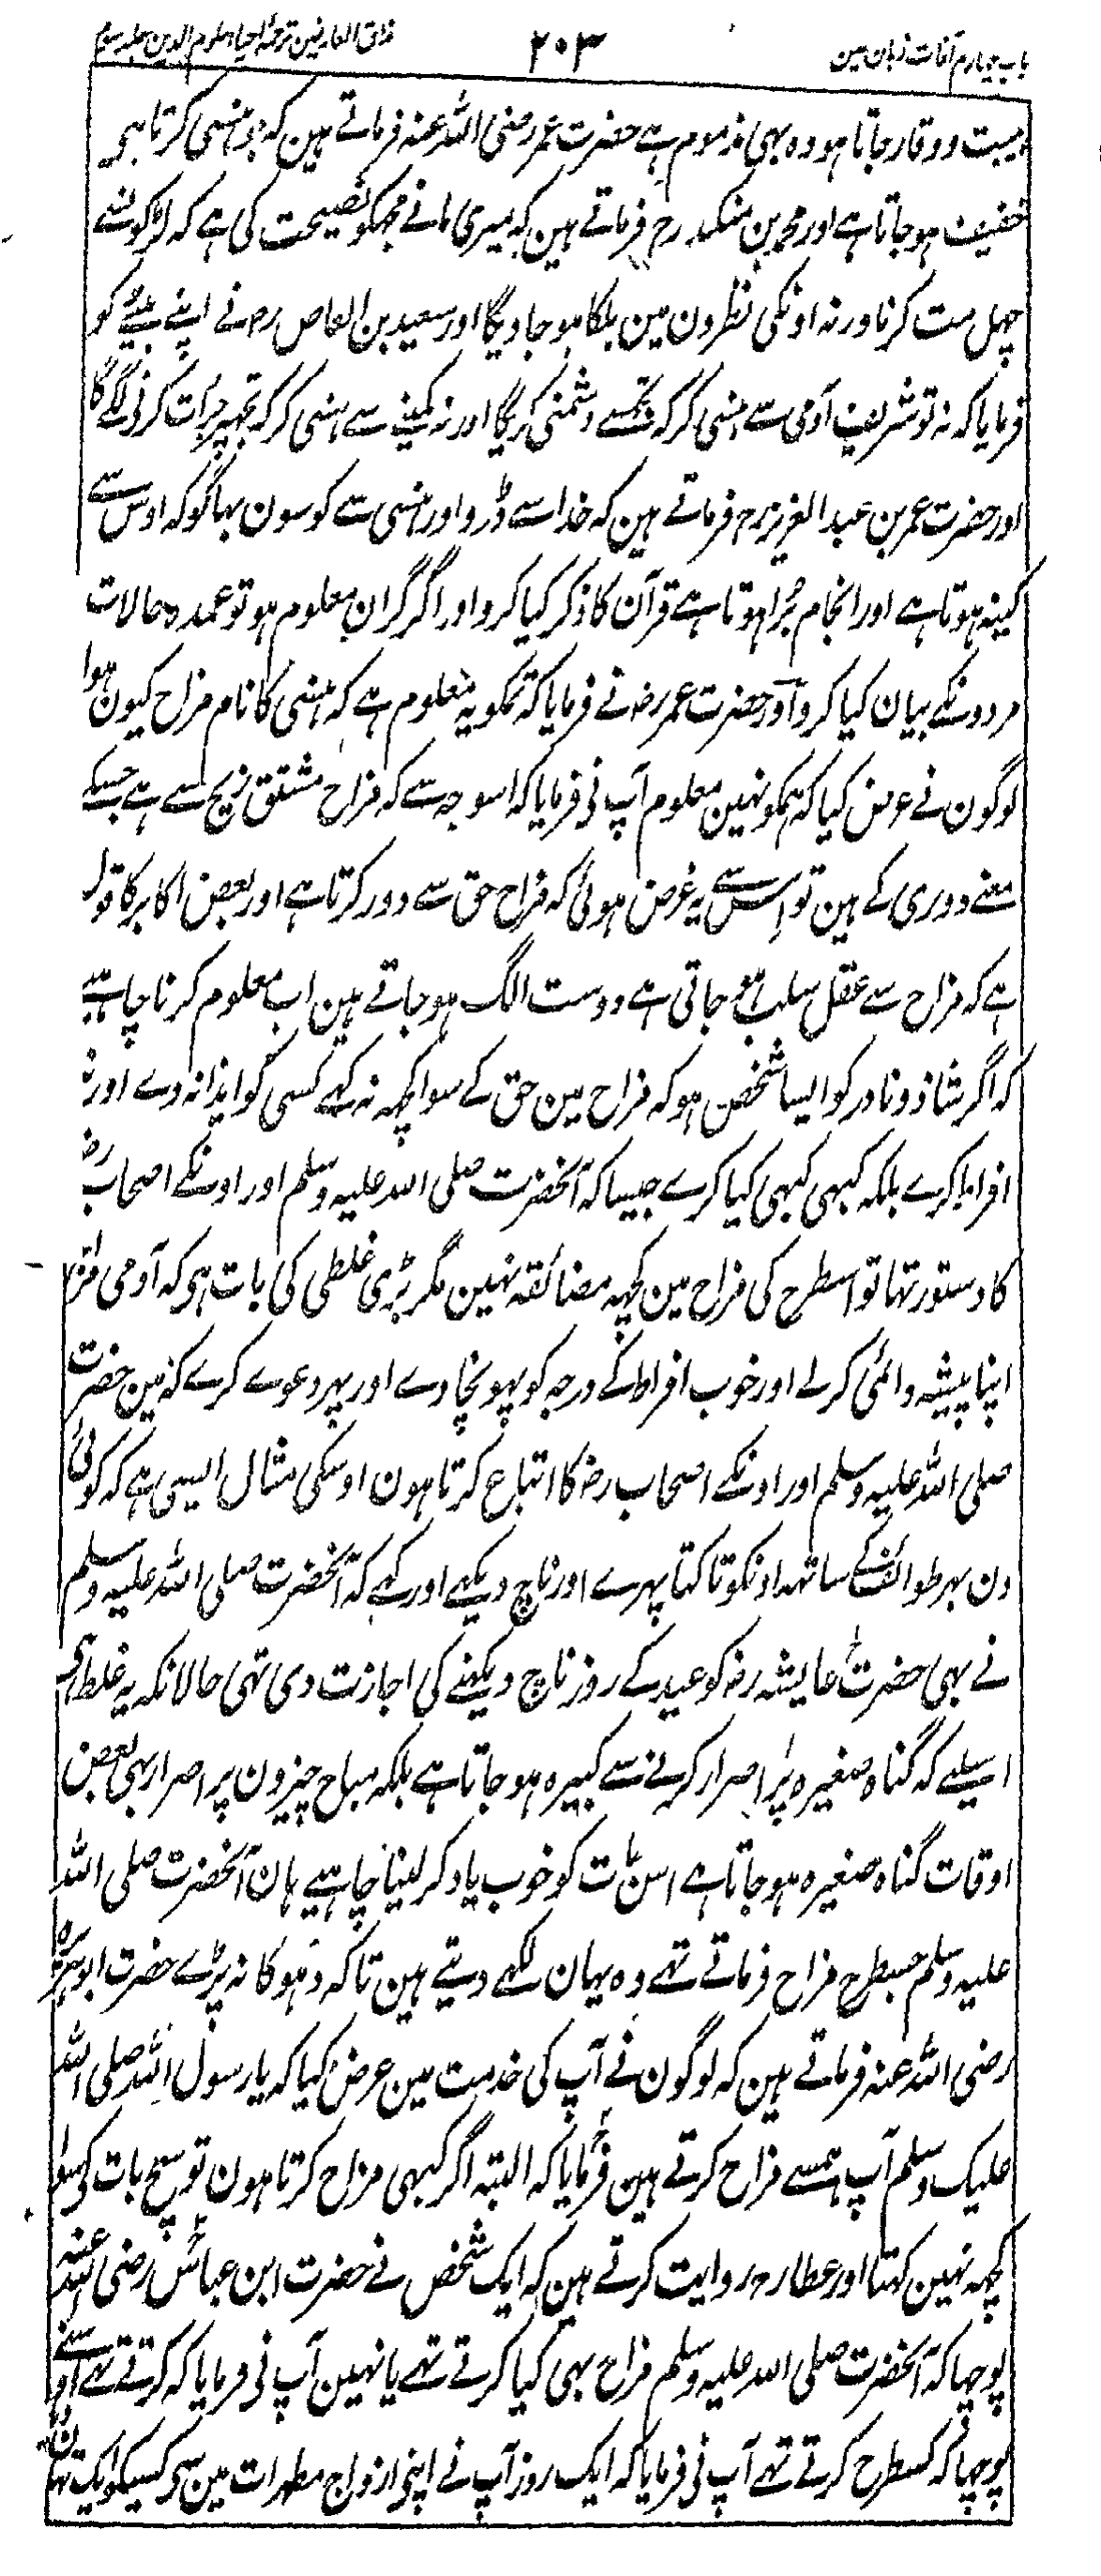 باب چہارم آفات زبان مین ۲۰۳ مذاق العارفین ترجمہ احیاء علوم الدین جلد سوم
ہیبت و وقار جاتا ہو وہ بہی مذموم ہے حضرت عمر رضی اللہ عنہ فرماتے ہین کہ جو ہنسی کرتا ہی
خفیف ہو جاتا ہے اور محمد بن منکدر رح فرماتے ہین کہ میری مانے مجہکو نصیحت کی ہے کہ لڑکونسے
چہل مت کرنا ورنہ اونکی نظرون مین ہلکا ہو جاویگا اور سعید بن العاص رہ نے اپنے بیٹے کو
فرمایا کہ نہ تو شریف آدمی سے ہنسی کر کہ تجسے دشمنی کریگا اور نہ کمینے سے ہنسی کر کہ تجہپر جرأت کرنی لگے گا
اور حضرت عمر بن عبد العزیز رح فرماتے ہین کہ خدا سے ڈرو اور ہنسی سے کوسون بہاگو کہ اوس سے
کینہ ہوتا ہے اور انجام بُرا ہوتا ہے قرآن کا ذکر کیا کرو اور اگر گران معلوم ہو تو عمدہ حالات
مردونکے بیان کیا کرو اور حضرت عمر رضہ نے فرمایا کہ تمکو یہ معلوم ہے کہ ہنسی کا نام مزاح کیون ہوا
لوگون نے عرض کیا کہ ہمکو نہین معلوم آپ نی فرمایا کہ اسوجہ سے کہ مزاح مشتق زیح سے ہے جسکے
معنے دوری کے ہین تو اس سے یہ غرض ہوئی کہ مزاح حق سے دور کرتا ہے اور بعض اکابر کا قول
ہے کہ مزاح سے عقل سلب ہو جاتی ہے دوست الگ ہو جاتے ہین اب معلوم کرنا چاہیے
کہ اگر شاذ و نادر کو ایسا شخص ہو کہ مزاح مین حق کے سوا کچہ نہ کہے کسی کو ایذا نہ دے اور نہ
افراط کرے بلکہ کبہی کبہی کیا کرے جیسا کہ آنحضرت صلی اللہ علیہ وسلم اور اونکے اصحاب رضہ
کا دستور تہا تو اسطرح کی مزاح مین کچہہ مضائقہ نہین مگر بڑی غلطی کی بات ہی کہ آدمی مزاح
اپنا پیشہ دائمی کرلے اور خوب افراط کے درجہ کو پہونچا دے اور پہر دعوے کرے کہ مین حضرت
صلی اللہ علیہ وسلم اور اونکے اصحاب رضہ کا اتباع کرتا ہون اوسکی مثال ایسی ہے کہ کوئی
دن بہر طوائف کے ساتہہ اونکو تاکتا پہرے اور ناچ دیکہے اور کہے کہ آنحضرت صلی اللہ علیہ وسلم
نے بہی حضرت عایشہ رضہ کو عید کے روز ناچ دیکہنے کی اجازت دی تہی حالانکہ یہ غلط ہی
اسلیے کہ گناہ صغیرہ پر اصرار کرنے سے کبیرہ ہو جاتا ہے بلکہ مباح چیزون پر اصرار بہی بعض
اوقات گناہ صغیرہ ہو جاتا ہے اس بات کو خوب یاد کر لینا چاہیے ہان آنحضرت صلی اللہ
علیہ وسلم جسطرح مزاح فرماتے تہے وہ یہان لکہے دیتے ہین تاکہ دہوکا نہ پڑے حضرت ابو ہریرہ
رضی اللہ عنہ فرماتے ہین کہ لوگون نے آپ کی خدمت مین عرض کیا کہ یا رسول اللہ صلی اللہ
علیک وسلم آپ ہمسے مزاح کرتے ہین فرمایا کہ البتہ اگر کبہی مزاح کرتا ہون تو سچ بات کی سوا
کچہہ نہین کہتا اور عطا رہ روایت کرتے ہین کہ ایک شخص نے حضرت ابن عباس رضی اللہ عنہ
پوچہا کہ آنحضرت صلی اللہ علیہ وسلم مزاح بہی کیا کرتے تہے یا نہین آپ نی فرمایا کہ کرتے تہے اوسنے
پوچہا کہ کسطرح کرتے تہے آپ نی فرمایا کہ ایک روز آپ نے اپنی ازواج مطہرات مین سی کسیکو ایک